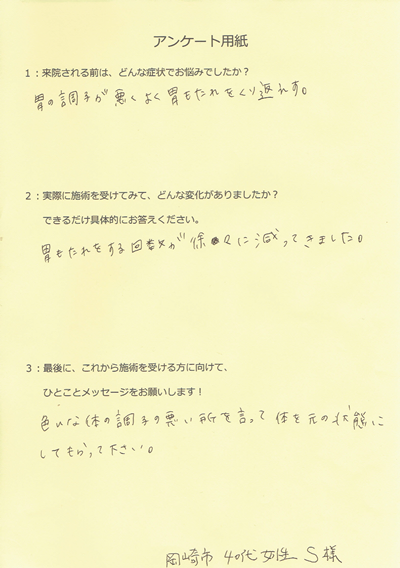 アンケート用紙
1：来院される前は、どんな症状でお悩みでしたか？
胃の調子が悪くよく胃もたれをくり返えす。
2：実際に施術を受けてみて、どんな変化がありましたか？
できるだけ具体的にお答えください。
胃もたれをする回数が徐々に減ってきました。
3：最後に、これから施術を受ける方に向けて、
ひとことメッセージをお願いします！
色んな体の調子の悪い所を言って体を元の状態に
してもらって下さい。
岡崎市 40代女性 S様